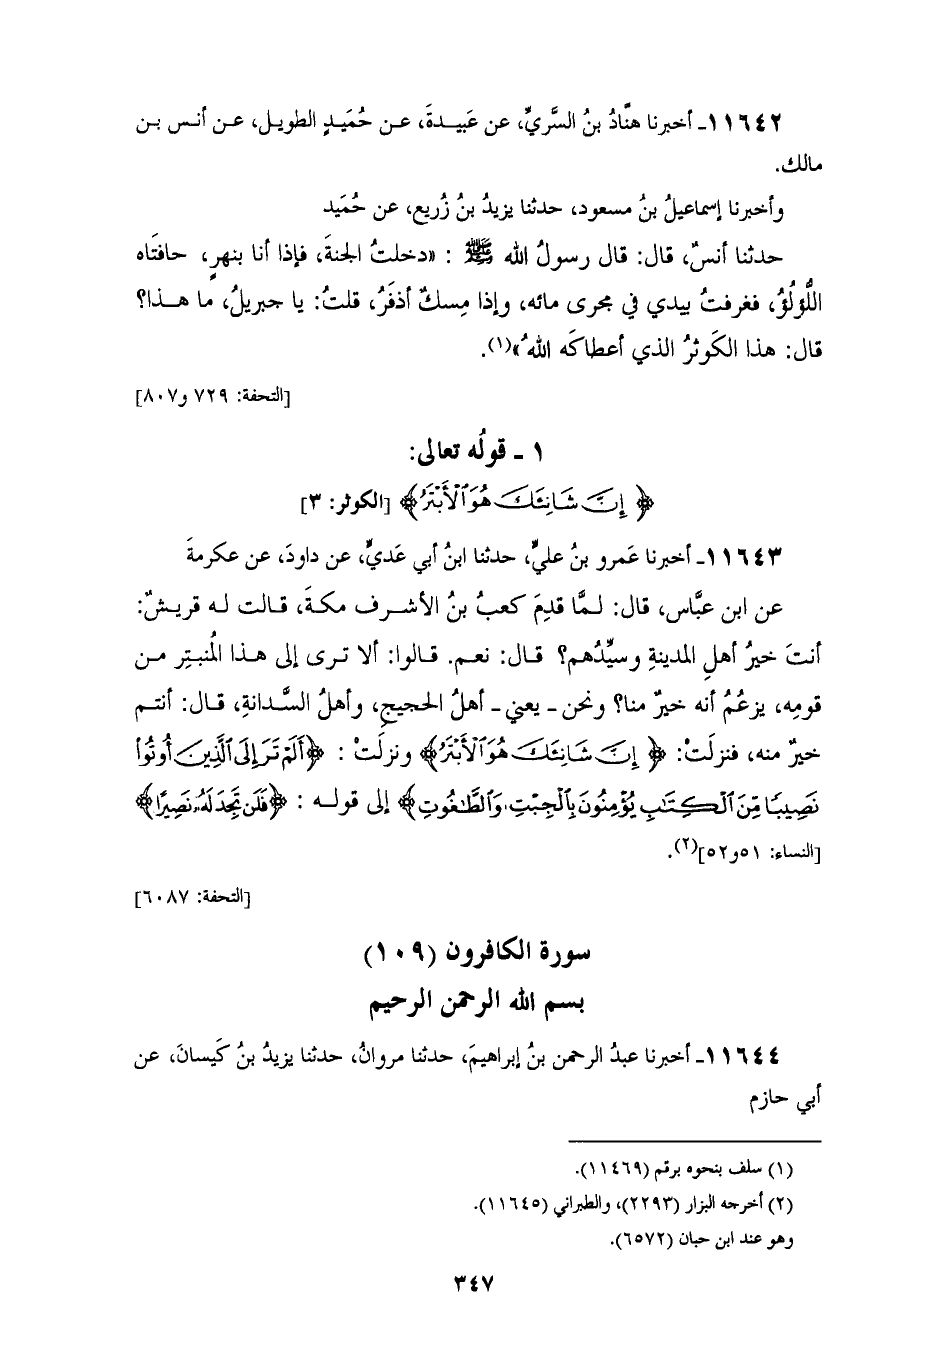 ١١٦٤٢ـ أخبرنا هنَّادُ بنُ السَّريِّ، عن عَبيــدةَ، عـن حُمَيدٍ الطويـل، عـن أنـس بـن
مالك.
وأخبرنا إسماعيلُ بنُ مسعود، حدثنا يزيدُ بنُ زُريع، عن حُمَيد
حدثنا أنسٌ، قال: قال رسولُ الله ﷺ : «دخلتُ الجنةَ، فإذا أنا بنهرٍ، حافتَاه
اللُّؤلُؤُ، فغرفتُ بيدي في مجرى مائه، وإذا مِسكٌ أذفَرُ، قلتُ: يا جبريلُ، ما هـذا؟
قال: هذا الكَوثرُ الذي أعطاكَه اللهُ»(١).
[التحفة: ٧٢٩ و٨٠٧]
١ ـ قولُه تعالى:
﴿ إِنَّ شَانِئَكَ هُوَ ٱلْأَبْتَرُ﴾ [الكوثر: ٣]
١١٦٤٣ـ أخبرنا عَمرو بنُ عليٍّ، حدثنا ابنُ أبي عَديٍّ، عن داودَ، عن عكرمةَ
عن ابن عبَّاس، قال: لـمَّا قدِمَ كعبُ بنُ الأشـرف مكـةَ، قـالت لـه قريـشٌ:
أنتَ خيرُ أهلِ المدينةِ وسيِّدُهم؟ قـال: نعـم. قـالوا: ألا تـرى إلى هـذا المُنبتِر مـن
قومِه، يزعُمُ أنه خيرٌ منا؟ ونحن ـ يعني ـ أهلُ الحجيجِ، وأهلُ السَّدانةِ، قـال: أنتـم
خيرٌ منه، فنزلَتْ: ﴿ إِنَّ شَانِئَكَ هُوَ ٱلْأَبْتَرُ﴾ ونزلَتْ : ﴿أَلَمْ تَرَ إِلَى ٱلَّذِينَ أُوتُوا۟
نَصِيبًا مِّنَ ٱلْكِتَٰبِ يُؤْمِنُونَ بِٱلْجِبْتِ وَٱلطَّٰغُوتِ﴾ إلى قولـه : ﴿فَلَن تَجِدَ لَهُۥ نَصِيرًا﴾
[النساء: ٥١و٥٢](٢).
[التحفة: ٦٠٨٧]
سورة الكافرون (١٠٩)
بسم الله الرحمن الرحيم
١١٦٤٤ـ أخبرنا عبدُ الرحمن بنُ إبراهيمَ، حدثنا مروانُ، حدثنا يزيدُ بنُ كَيسانَ، عن
أبي حازم
(١) سلف بنحوه برقم (١١٤٦٩).
(٢) أخرجه البزار (٢٢٩٣)، والطبراني (١١٦٤٥).
وهو عند ابن حبان (٦٥٧٢).
٣٤٧